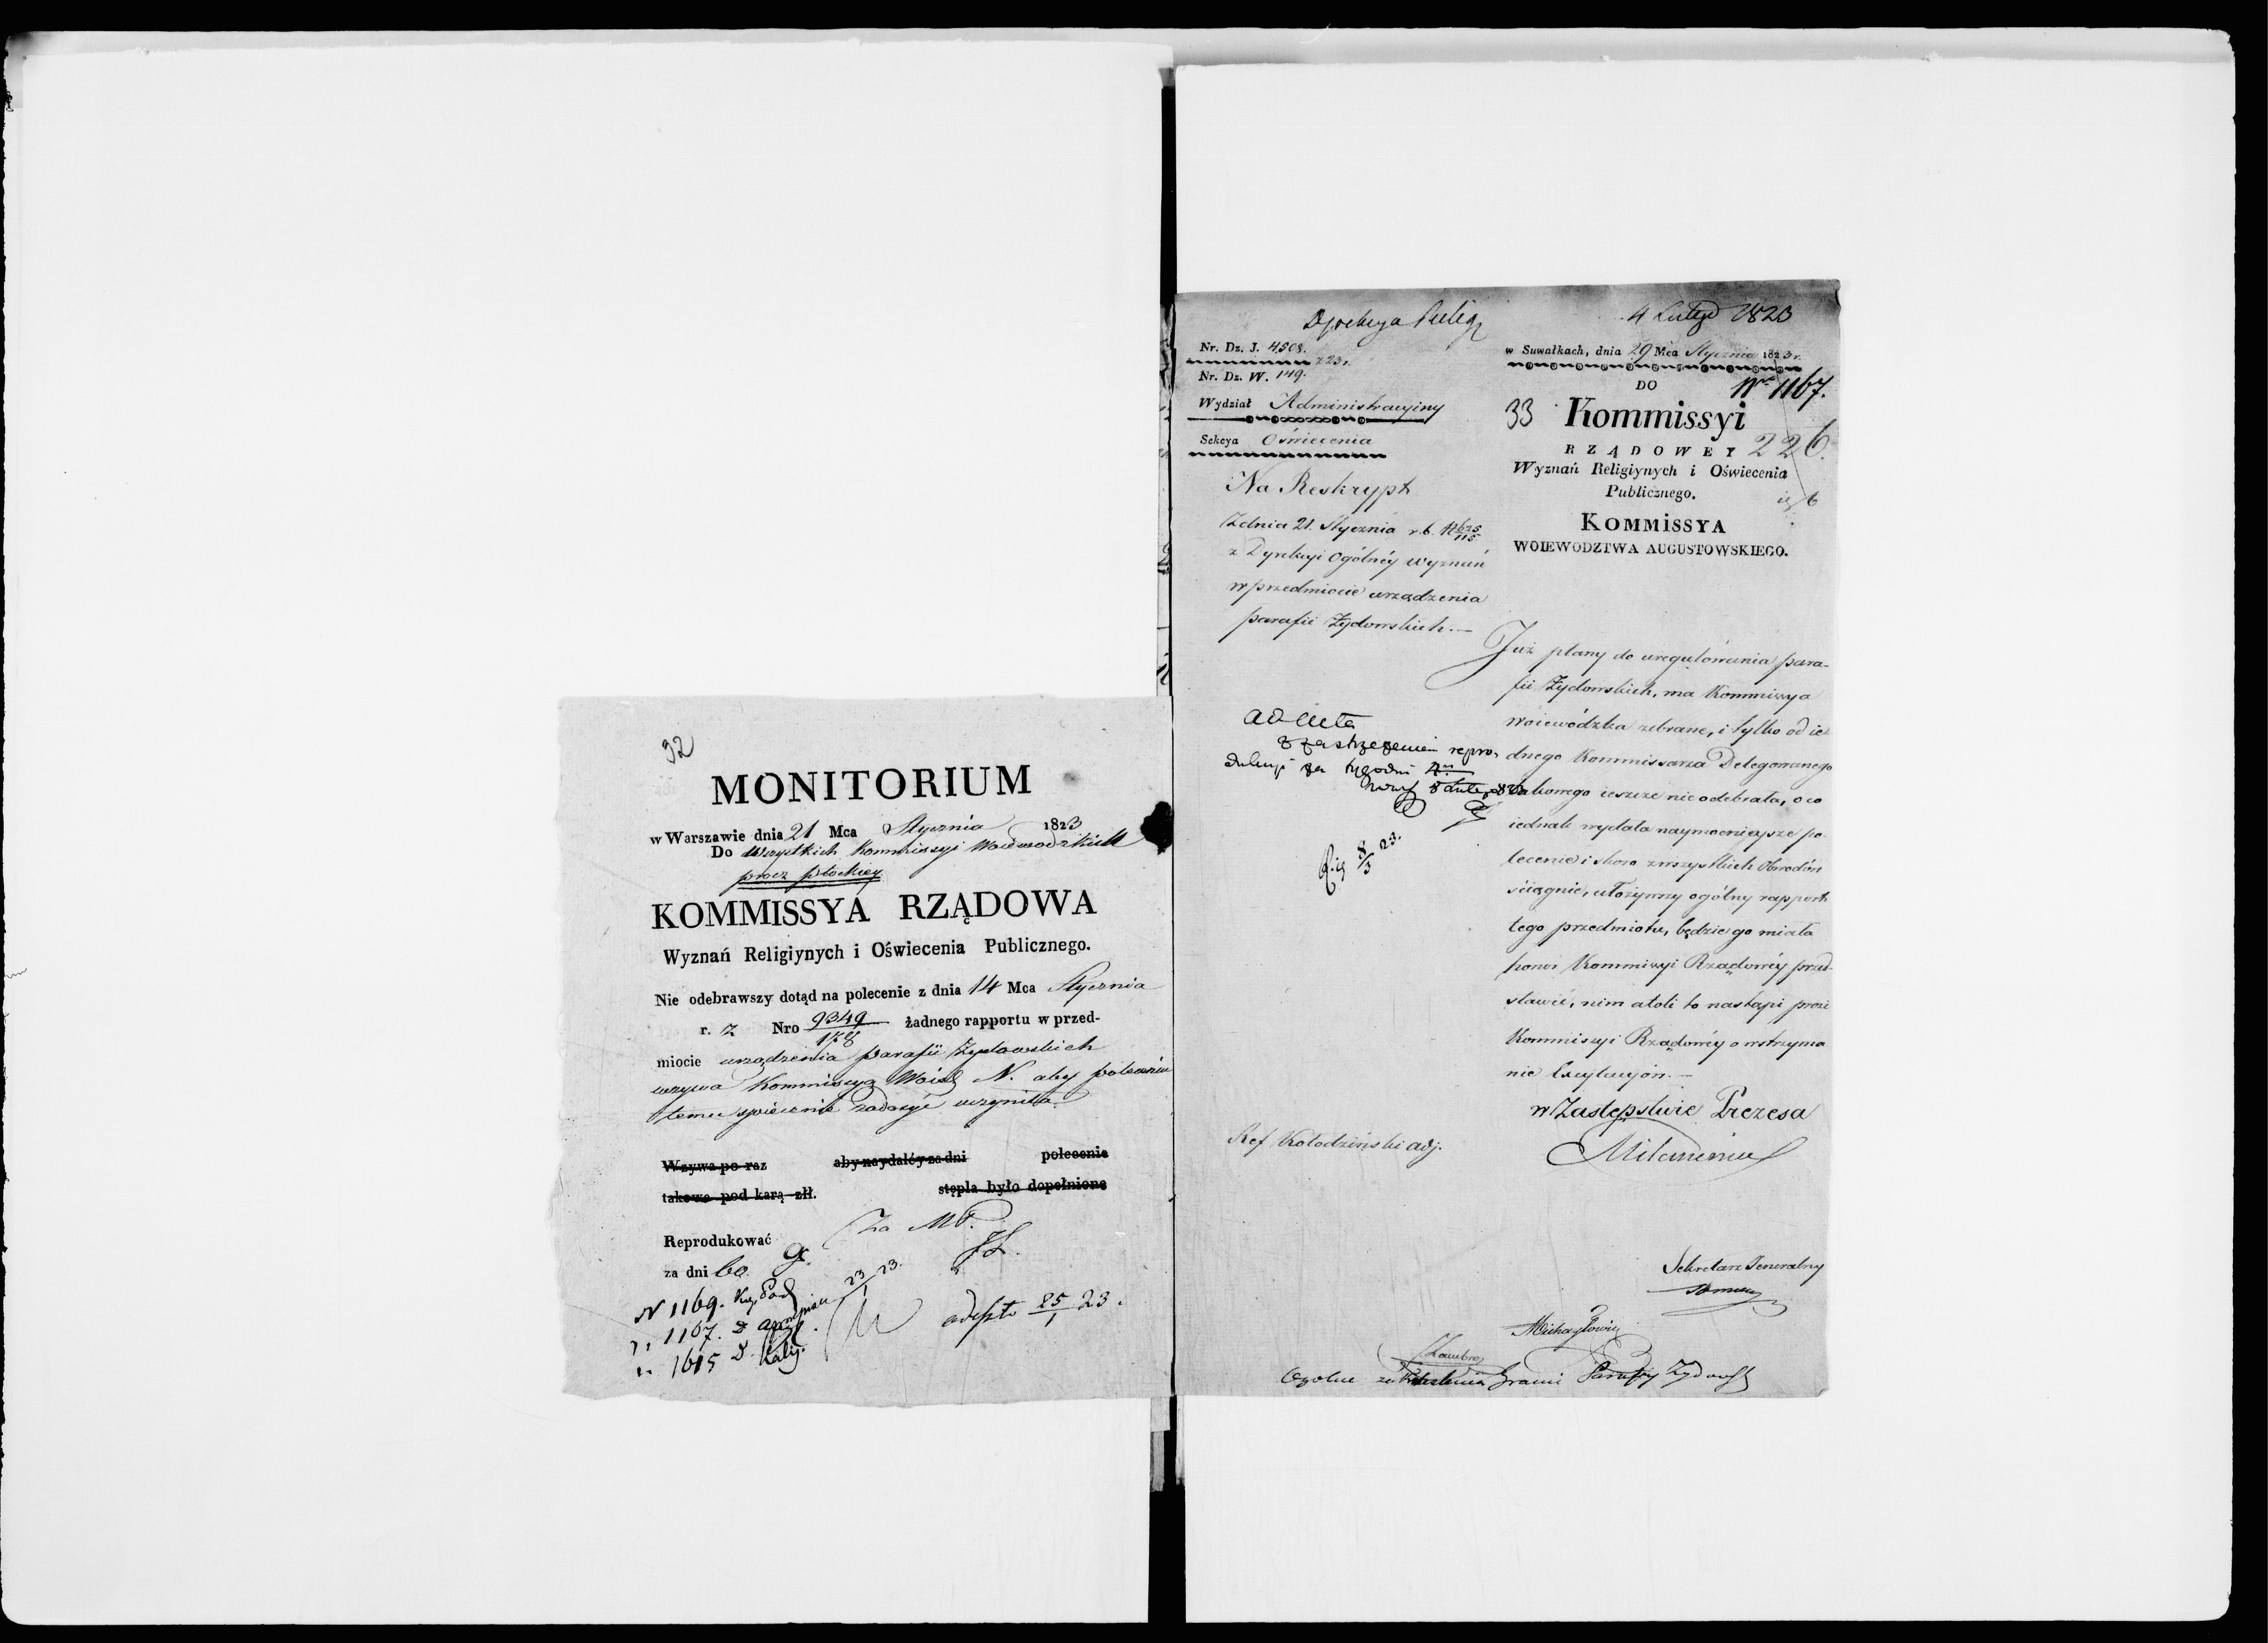 32
MONITORIUM
w Warszawie dnia 21 Mca Stycznia 1823
Do wszystkich Kommissyi Woiewodzkich
procz płockiey
KOMMISSYA RZĄDOWA
Wyznań Religiynych i Oświecenia Publicznego.
Nie odebrawszy dotąd na polecenie z dnia 14 Mca Stycznia
r. z Nro 9349 żadnego rapportu w przed-
miocie urządzenia parafii Żydowskich
wzywa Kommissya Woiew N. aby poleceniu
temu spiesznie zadosyć uczyniła
Wzywa po raz aby naydaléy za dni polecenie
takowe pod karą złł. stępla było dopełnione
Reprodukować Za MP.
za dni 60
N 1169.
1167.
1615 Kalis.
23/1 23.
25/1 23.
Dyrekcya Relig
4 Lutego 1823
Nr. Dz. J. 4508.
Nr. Dz. W. 149.
Wydział Administracyiny
Sekcya Oświecenia
w Suwałkach, dnia 29 Mca Stycznia 1823 r.
DO
No 1167.
33 Kommissyi
RZĄDOWEY 226.
Wyznań Religiynych i Oświecenia
Publicznego.
KOMMISSYA
WOIEWODZTWA AUGUSTOWSKIEGO.
Na Reskrypt
Z dnia 21. Stycznia r. b. N 625/115
z Dyrekcyi Ogólnéy wyznań
w przedmiocie urządzenia
parafii Żydowskich.—
Już plany do uregulowania para-
fii Żydowskich, ma Kommissya
Woiewódzka zebrane, i tylko od ie-
dnego Kommissarza Delegowanego
takowego ieszcze nie odebrała, o co
iednak wydała naymocnieysze po-
lecenie i skoro z wszystkich Obwodów
ściągnie, ułożywszy ogólny rapport
tego przedmiotu, będzie go miała
honor Kommissyi Rządowéy przed-
stawić, nim atoli to nastąpi prosi
Kommissyi Rządowéy o wstrzyma
nie Excytacyów.—
ad acta
z zastrzeżeniem repro-
dukcyi za tygodni 4
8/3 23.
w Zastępstwie Prezesa
Ref Kołodziński adj.
Sekretarz Jeneralny
Michayłowicz
Ogolne zakreslenia Granic Parafiy Zydowsk